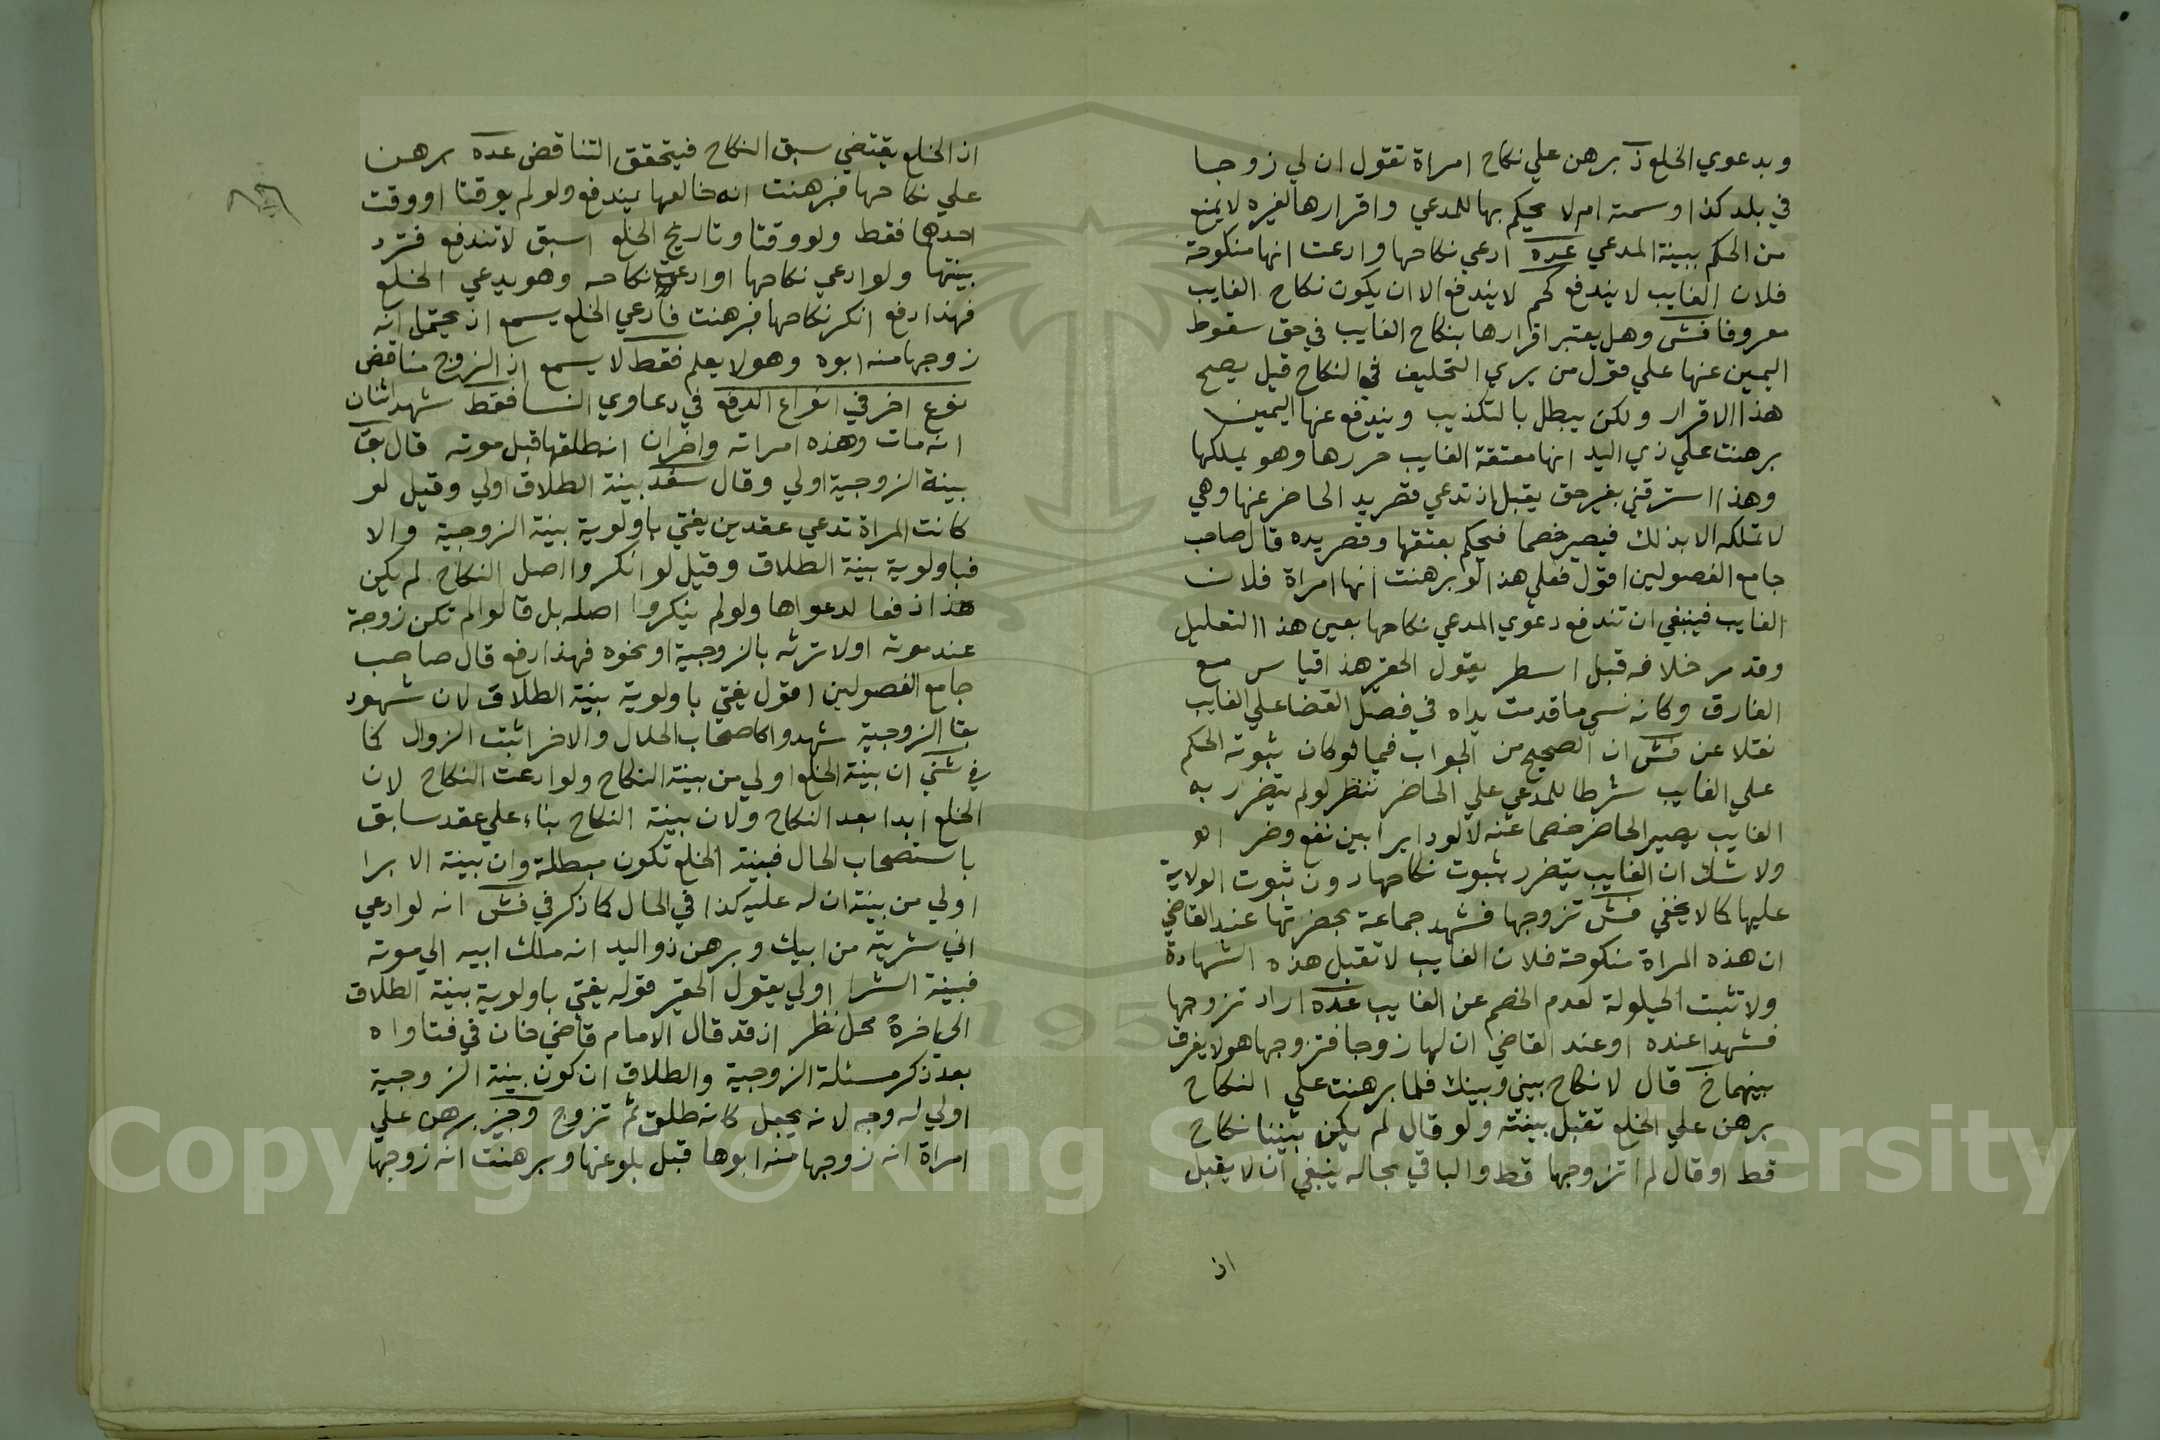 وبدعوي الخلع ذ برهن علي نكاح امراة تقول ان لي زوجا
في بلد كذا وسمته ام لا يحكم بها للمدعي واقرارها لغيره لا يمنع
من الحكم ببينة المدعي عده ادعي نكاحها وادعت انها منكوحة
فلان الغايب لا يندفع كحم لا يندفع الا ان يكون نكاح الغايب
معروفا فش وهل يعتبر اقرارها بنكاح الغايب في حق سقوط
اليمين عنها علي قول من يري التحليف في النكاح قيل يصح
هذا الاقرار ولكن يبطل بالتكذيب ويندفع عنها اليمين
برهنت علي ذي اليد انها معتقة الغايب حررها وهو يملكها
وهذا استرقني بغير حق يقبل اذ تدعي قصر يد الحاضر عنها وهي
لا تملكه الا بذلك فيصير خصما فيحكم بعتقها وقصر يده قال صاحب
جامع الفصولين اقول فعلي هذا لو برهنت انها امراة فلان
الغايب فينبغي ان تندفع دعوي المدعي نكاحها بعين هذا التعليل
وقد مر خلافه قبل اسطر يقول الحقير هذا قياس مع
الفارق وكانه نسي ما قدمت يداه في فصل القضا علي الغايب
نقلا عن فش ان الصحيح من الجواب فيما لو كان ثبوت الحكم
علي الغايب شرطا للمدعي علي الحاضر ننظر لو لم يتضرر به
الغايب يصير الحاضر خصما عنه لا لو دايرا بين نفع وضر
ولا شك ان الغايب يتضرر بثبوت نكاحها دون ثبوت الولاية
عليها كما لا يخفي فش تزوجها فشهد جماعة بحضرتها عند القاضي
ان هذه المراة منكوحة فلان الغايب لا تقبل هذه الشهادة
ولا تثبت الحيلولة لعدم الخصم عن الغايب عده اراد تزوجها
فشهدا عنده او عند القاضي ان لها زوجا فتزوجها هو لا يفرق
بينهما خ قال لا نكاح بيني وبينك فلما برهنت علي النكاح
برهن علي الخلع تقبل بينته ولو قال لم يكن بيننا نكاح
قط او قال لم اتزوجها قط والباقي بحاله ينبغي ان لا يقبل
اذ
اذ الخلع يقتضي سبق النكاح فيتحقق التناقض عده برهن
علي نكاحها فبرهنت انه خالعها يندفع ولو لم يوقتا او وقت
احدهما فقط ولو وقتا وتاريخ الخلع اسبق لا تندفع فترد
بينتها ولو ادعي نكاحها او ادعت نكاحه وهو يدعي الخلع
فهذا دفع انكر نكاحها فبرهنت فادعي الخلع يسمع اذ يحتمل انه
زوجها منه ابوه وهو لا يعلم فقط لا يسمع اذ الزوج مناقض
نوع اخر في انواع الدفع في دعاوي النسا فقط شهد اثنان
انه مات وهذه امراته واخران انه طلقها قبل موته قال بق
بينة الزوجية اولي وقال سغد بينة الطلاق اولي وقيل لو
كانت المراة تدعي عقدين يفتي باولوية بينة الزوجية والا
فباولوية بينة الطلاق وقيل لو انكروا اصل النكاح لم يكن
هذا دفعا لدعواها ولو لم ينكروا اصله بل قالوا لم تكن زوجة
عند موته او لا ترثه بالزوجية او نحوه فهذا دفع قال صاحب
جامع الفصولين اقول يفتي باولوية بينة الطلاق لان شهود
بقا الزوجية شهدوا كاصحاب الحلال والاخر اثبت الزوال كما
في شتي ان بينة الخلع اولي من بينة النكاح ولو ادعت النكاح لان
الخلع ابدا بعد النكاح ولان بينة النكاح بناء علي عقد سابق
باستصحاب الحال فبينة الخلع تكون مبطلة وان بينة الابرا
اولي من بينة ان له عليه كذا في الحال كما ذكر في فش انه لو ادعي
اني شريته من ابيك وبرهن ذو اليد انه ملك ابيه الي موته
فبينة الشرا اولي يقول الحقير قوله يفتي باولوية بينة الطلاق
الي اخره محل نظر اذ قد قال الامام قاضي خان في فتاواه
بعد ذكر مسئلة الزوجية والطلاق ان كون بينة الزوجية
اولي له وجه لانه يجعل كانه طلق ثم تزوج وجيز برهن علي
امراة انه زوجها منه ابوها قبل بلوغها وبرهنت انه زوجها
Copyright © King Saud University
195